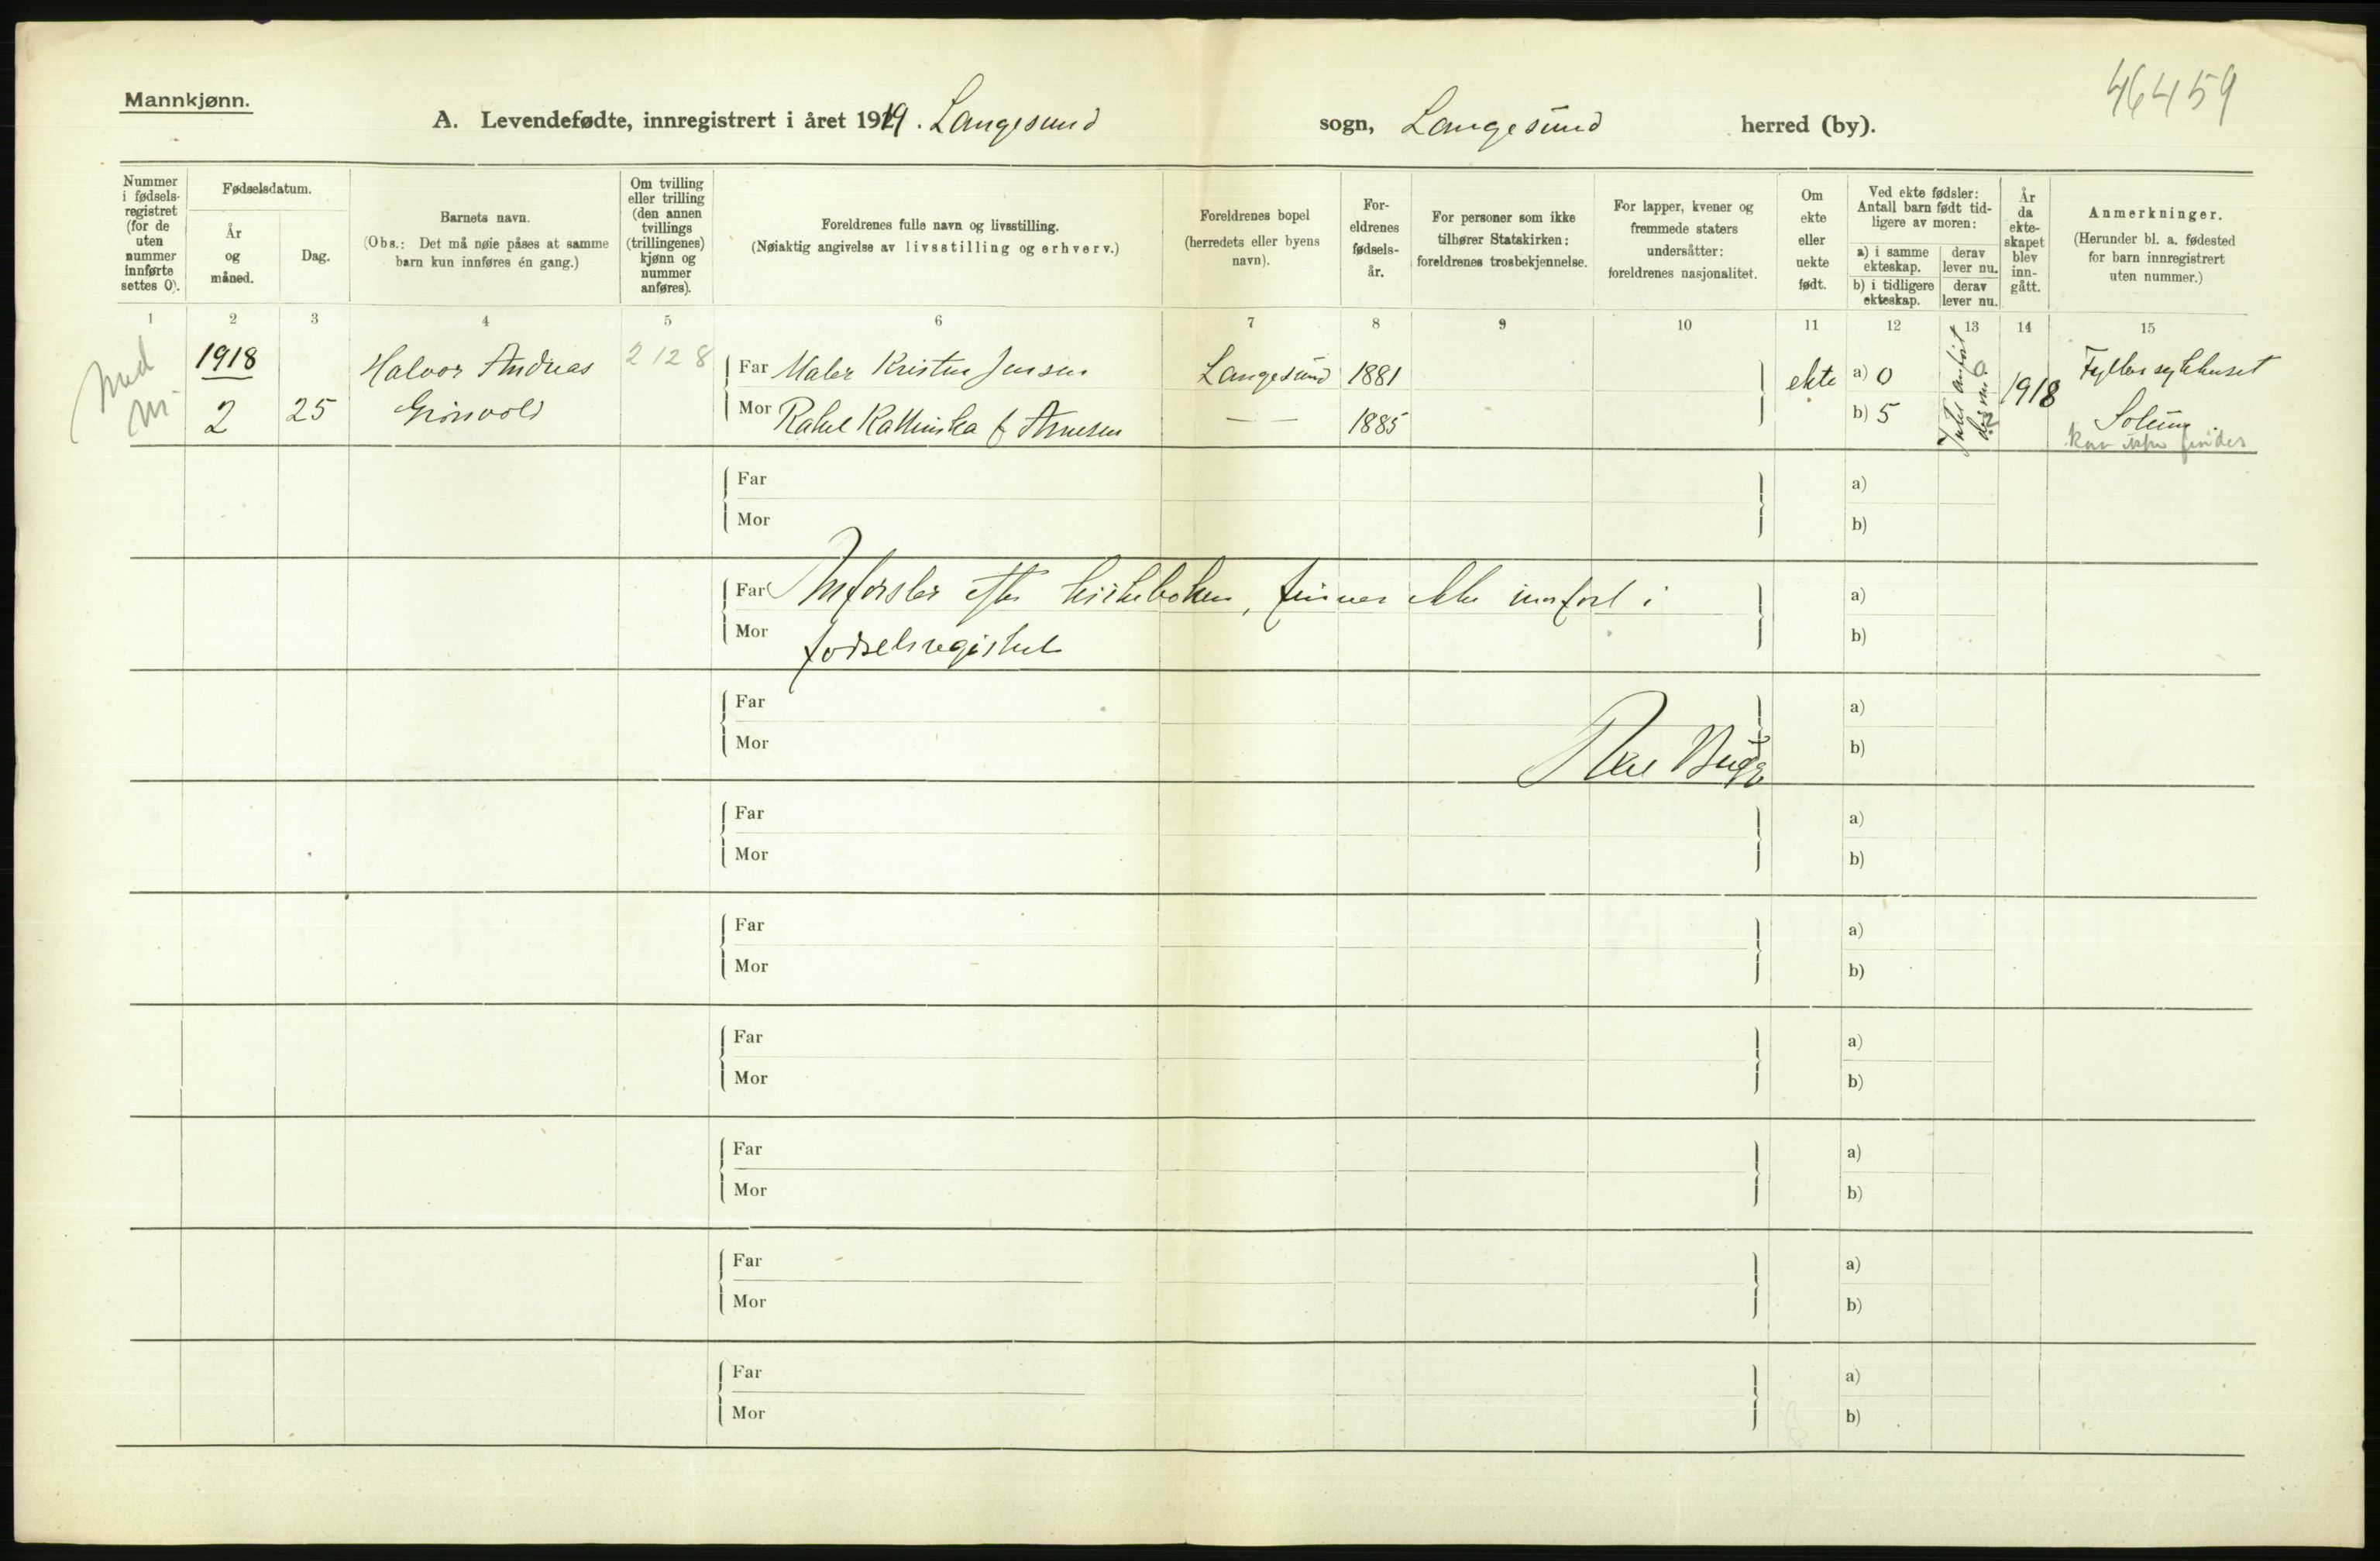 Mannkjønn.
46459
A. Levendefødte, innregistrert i året 1919. Langesund sogn, Langesund herred (by).
Nummer i fødsels-registret (for de uten nummer innførte settes 0).
Fødselsdatum.
År og måned.
Dag.
Barnets navn.
(Obs.: Det må nøie påses at samme barn kun innføres én gang.)
Om tvilling eller trilling (den annen tvillings (trillingenes) kjønn og nummer anføres).
Foreldrenes fulle navn og livsstilling.
(Nøiaktig angivelse av livsstilling og erhverv.)
Foreldrenes bopel (herredets eller byens navn).
For-eldrenes fødsels-år.
For personer som ikke tilhører Statskirken: foreldrenes trosbekjennelse.
For lapper, kvener og fremmede staters undersåtter: foreldrenes nasjonalitet.
Om ekte eller uekte født.
Ved ekte fødsler: Antall barn født tid-ligere av moren:
a) i samme ekteskap.
derav lever nu.
b) i tidligere ekteskap.
derav lever nu.
År da ekte-skapet blev inn-gått.
Anmerkninger.
(Herunder bl. a. fødested for barn innregistrert uten nummer.)
1 2 3 4 5 6 7 8 9 10 11 12 13 14 15
1918 Halvor Andreas 2128 Far Maler Kristen Jensen Langesund 1881 ekte a) 0 1918 Fylkessykhuset
2 25 Grønvold Mor Rakel Kathinka f Arnesen — — 1885 b) 5 Solum
kan ikke findes
Far a)
Mor b)
Far Innførsler efter kirkeboken, finnes ikke innført i a)
Mor fødselsregistret b)
Far a)
Mor Bugge b)
Far a)
Mor b)
Far a)
Mor b)
Far a)
Mor b)
Far a)
Mor b)
Far a)
Mor b)
Far a)
Mor b)